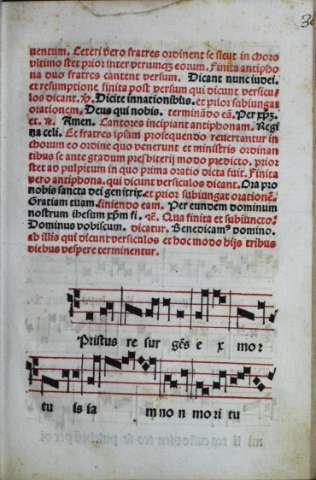 uentum. Ceteri vero fratres ordinent se sicut in choro
vltimo stet prior inter vtrumqz eorum. Finita antipho
na duo fratres cantent versum. Dicant nunc iudei.
et resumptione finita post versum qui dicunt versicu/
los dicant. Dicite in nationibus. et prior subiungat
orationem. Deus qui nobis. terminādo eā. Per xp̄z.
et. Amen. Cantores incipiant antiphonam. Regi
na celi. Et fratres ipsam prosequendo reuertantur in
chorum eo ordine quo venerunt et ministris ordinan
tibus se ante gradum presbiterij modo predicto. prior
stet ad pulpitum in quo prima oratio dicta fuit. Finita
vero antiphona. qui dicunt versiculos dicant. Ora pro
nobis sancta dei genitrix. et prior subiungat orationē.
Gratiam tuam. finiendo eam. Per eundem dominum
nostrum ihesum xp̄m fi. Qua finita et subiuncto:
Dominus vobiscum. dicatur. Benedicam⁹ domino.
ab illis qui dicunt versiculos et hoc modo hijs tribus
diebus vespere terminentur.
Pristus re sur gēs e x mor
tu is ia m no n mori tu